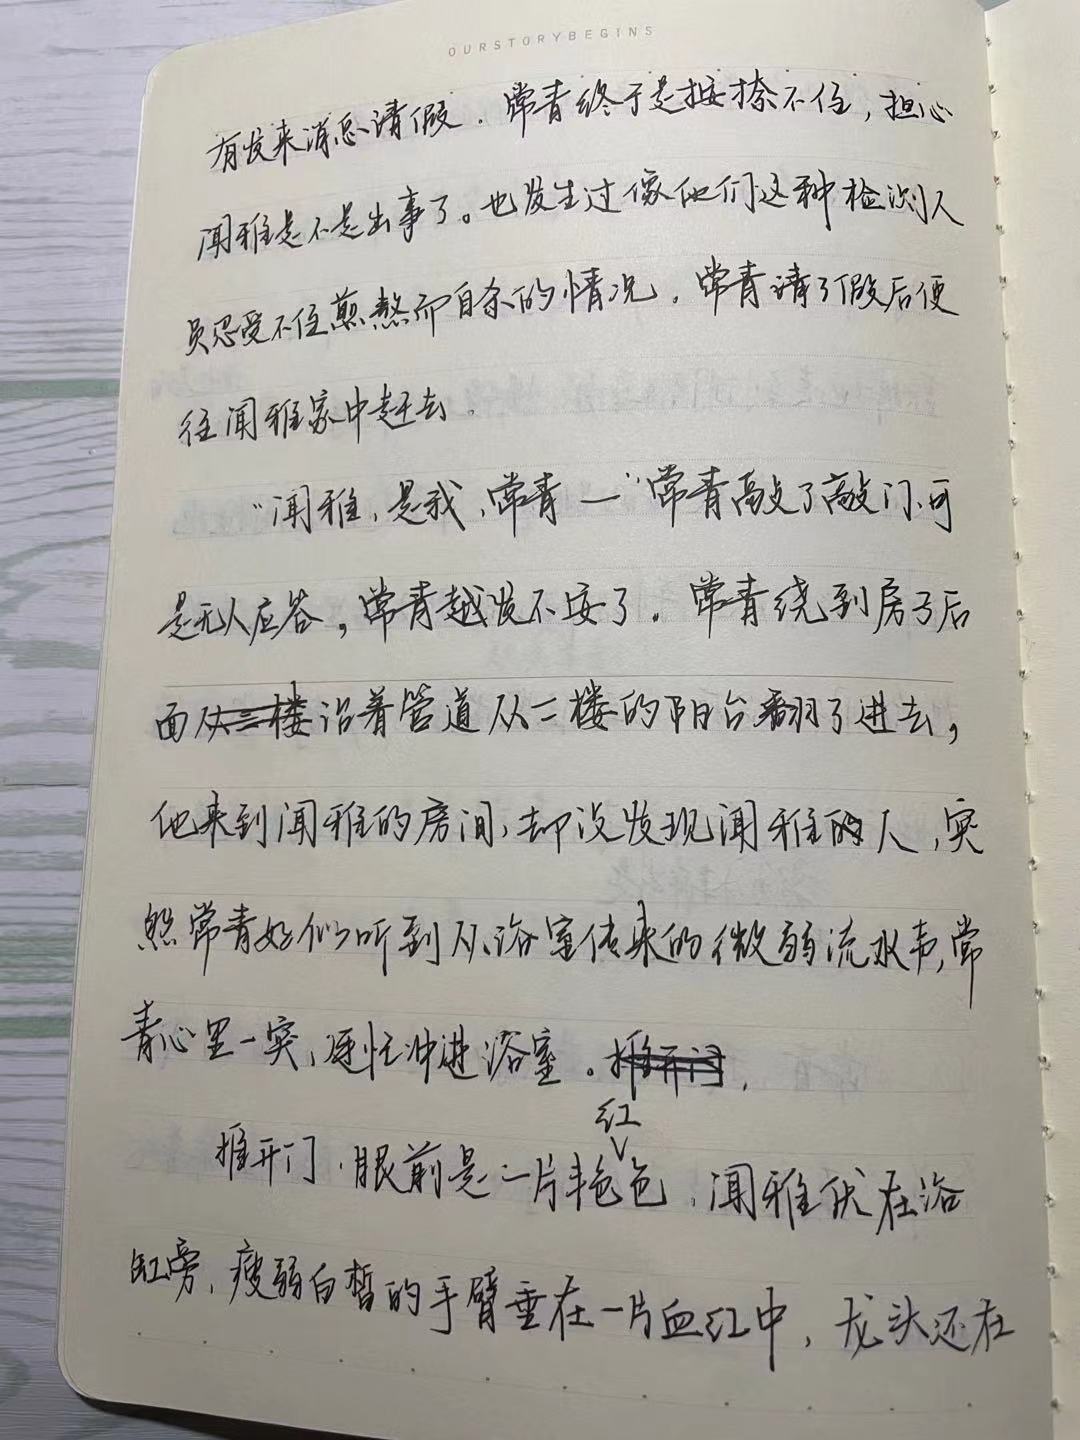 OURSTORYBEGINS
有发来消息请假．常青终于是按捺不住，担心
闻雅是不是出事了。也发生过像他们这种检测人
员忍受不住煎熬而自杀的情况．常青请了假后便
往闻雅家中赶去．
“闻雅，是我，常青—”常青敲了敲门．可
是无人应答，常青越发不安了．常青绕到房子后
面从三楼沿着管道从二楼的阳台翻了进去，
他来到闻雅的房间，却没发现闻雅的人，突
然常青好似听到从浴室传来的微弱流水声，常
青心里一突，连忙冲进浴室。推开门．
推开门．眼前是一片艳红色，闻雅伏在浴
缸旁，瘦弱白皙的手臂垂在一片血红中，龙头还在